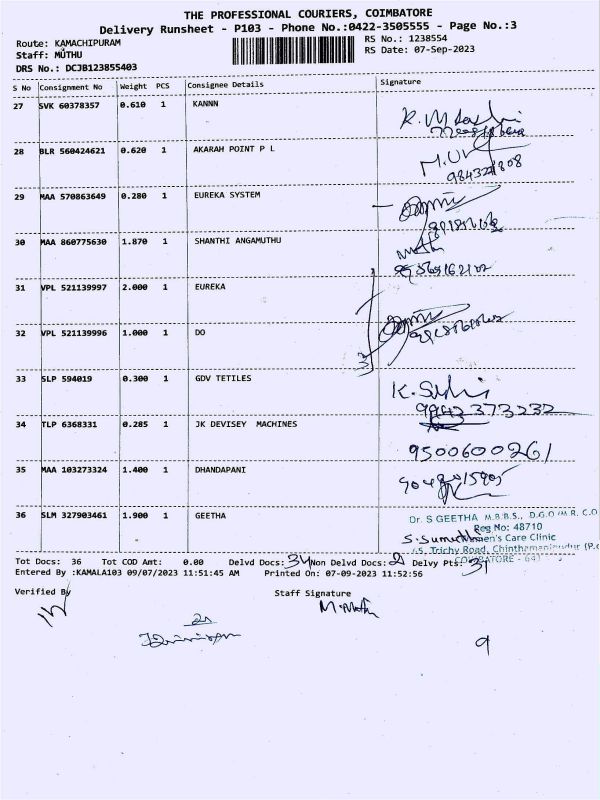 THE PROFESSIONAL COURIERS, COIMBATORE
Delivery Runsheet - P103 - Phone No.:0422-3505555 - Page No.:3
Route: KAMACHIPURAM
RS No.: 1238554
Staff: MUTHU
RS Date: 07-Sep-2023
DRS No.: DCJB123855403
S No Consignment No Weight PCS Consignee Details Signature
27 SVK 60378357 0.610 1 KANNN
28 BLR 560424621 0.620 1 AKARAH POINT P L
29 MAA 570863649 0.280 1 EUREKA SYSTEM
30 MAA 860775630 1.870 1 SHANTHI ANGAMUTHU
31 VPL 521139997 2.000 1 EUREKA
32 VPL 521139996 1.000 1 DO
33 SLP 594019 0.300 1 GDV TETILES
9942373232
34 TLP 6368331 0.285 1 JK DEVISEY MACHINES
9500600261
35 MAA 103273324 1.400 1 DHANDAPANI
36 SLM 327903461 1.900 1 GEETHA
Dr. S GEETHA M.B.B.S., D.G.O
Reg No: 48710
Women's Care Clinic
Trichy Road, Chinthamanipudur
COIMBATORE - 641
Tot Docs: 36 Tot COD Amt: 0.00 Delvd Docs: 34 Non Delvd Docs: 2 Delvy Pts:
Entered By :KAMALA103 09/07/2023 11:51:45 AM Printed On: 07-09-2023 11:52:56
Verified By Staff Signature
9